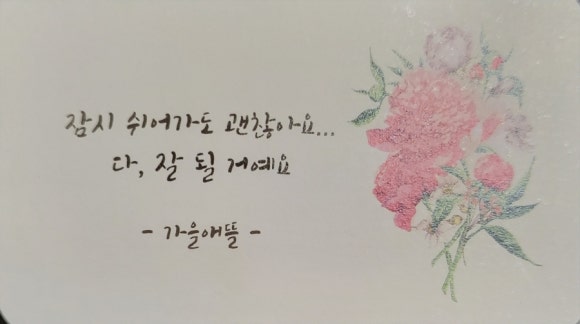 잠시 쉬어가도 괜찮아요...
다, 잘 될 거예요
- 가을애뜰 -